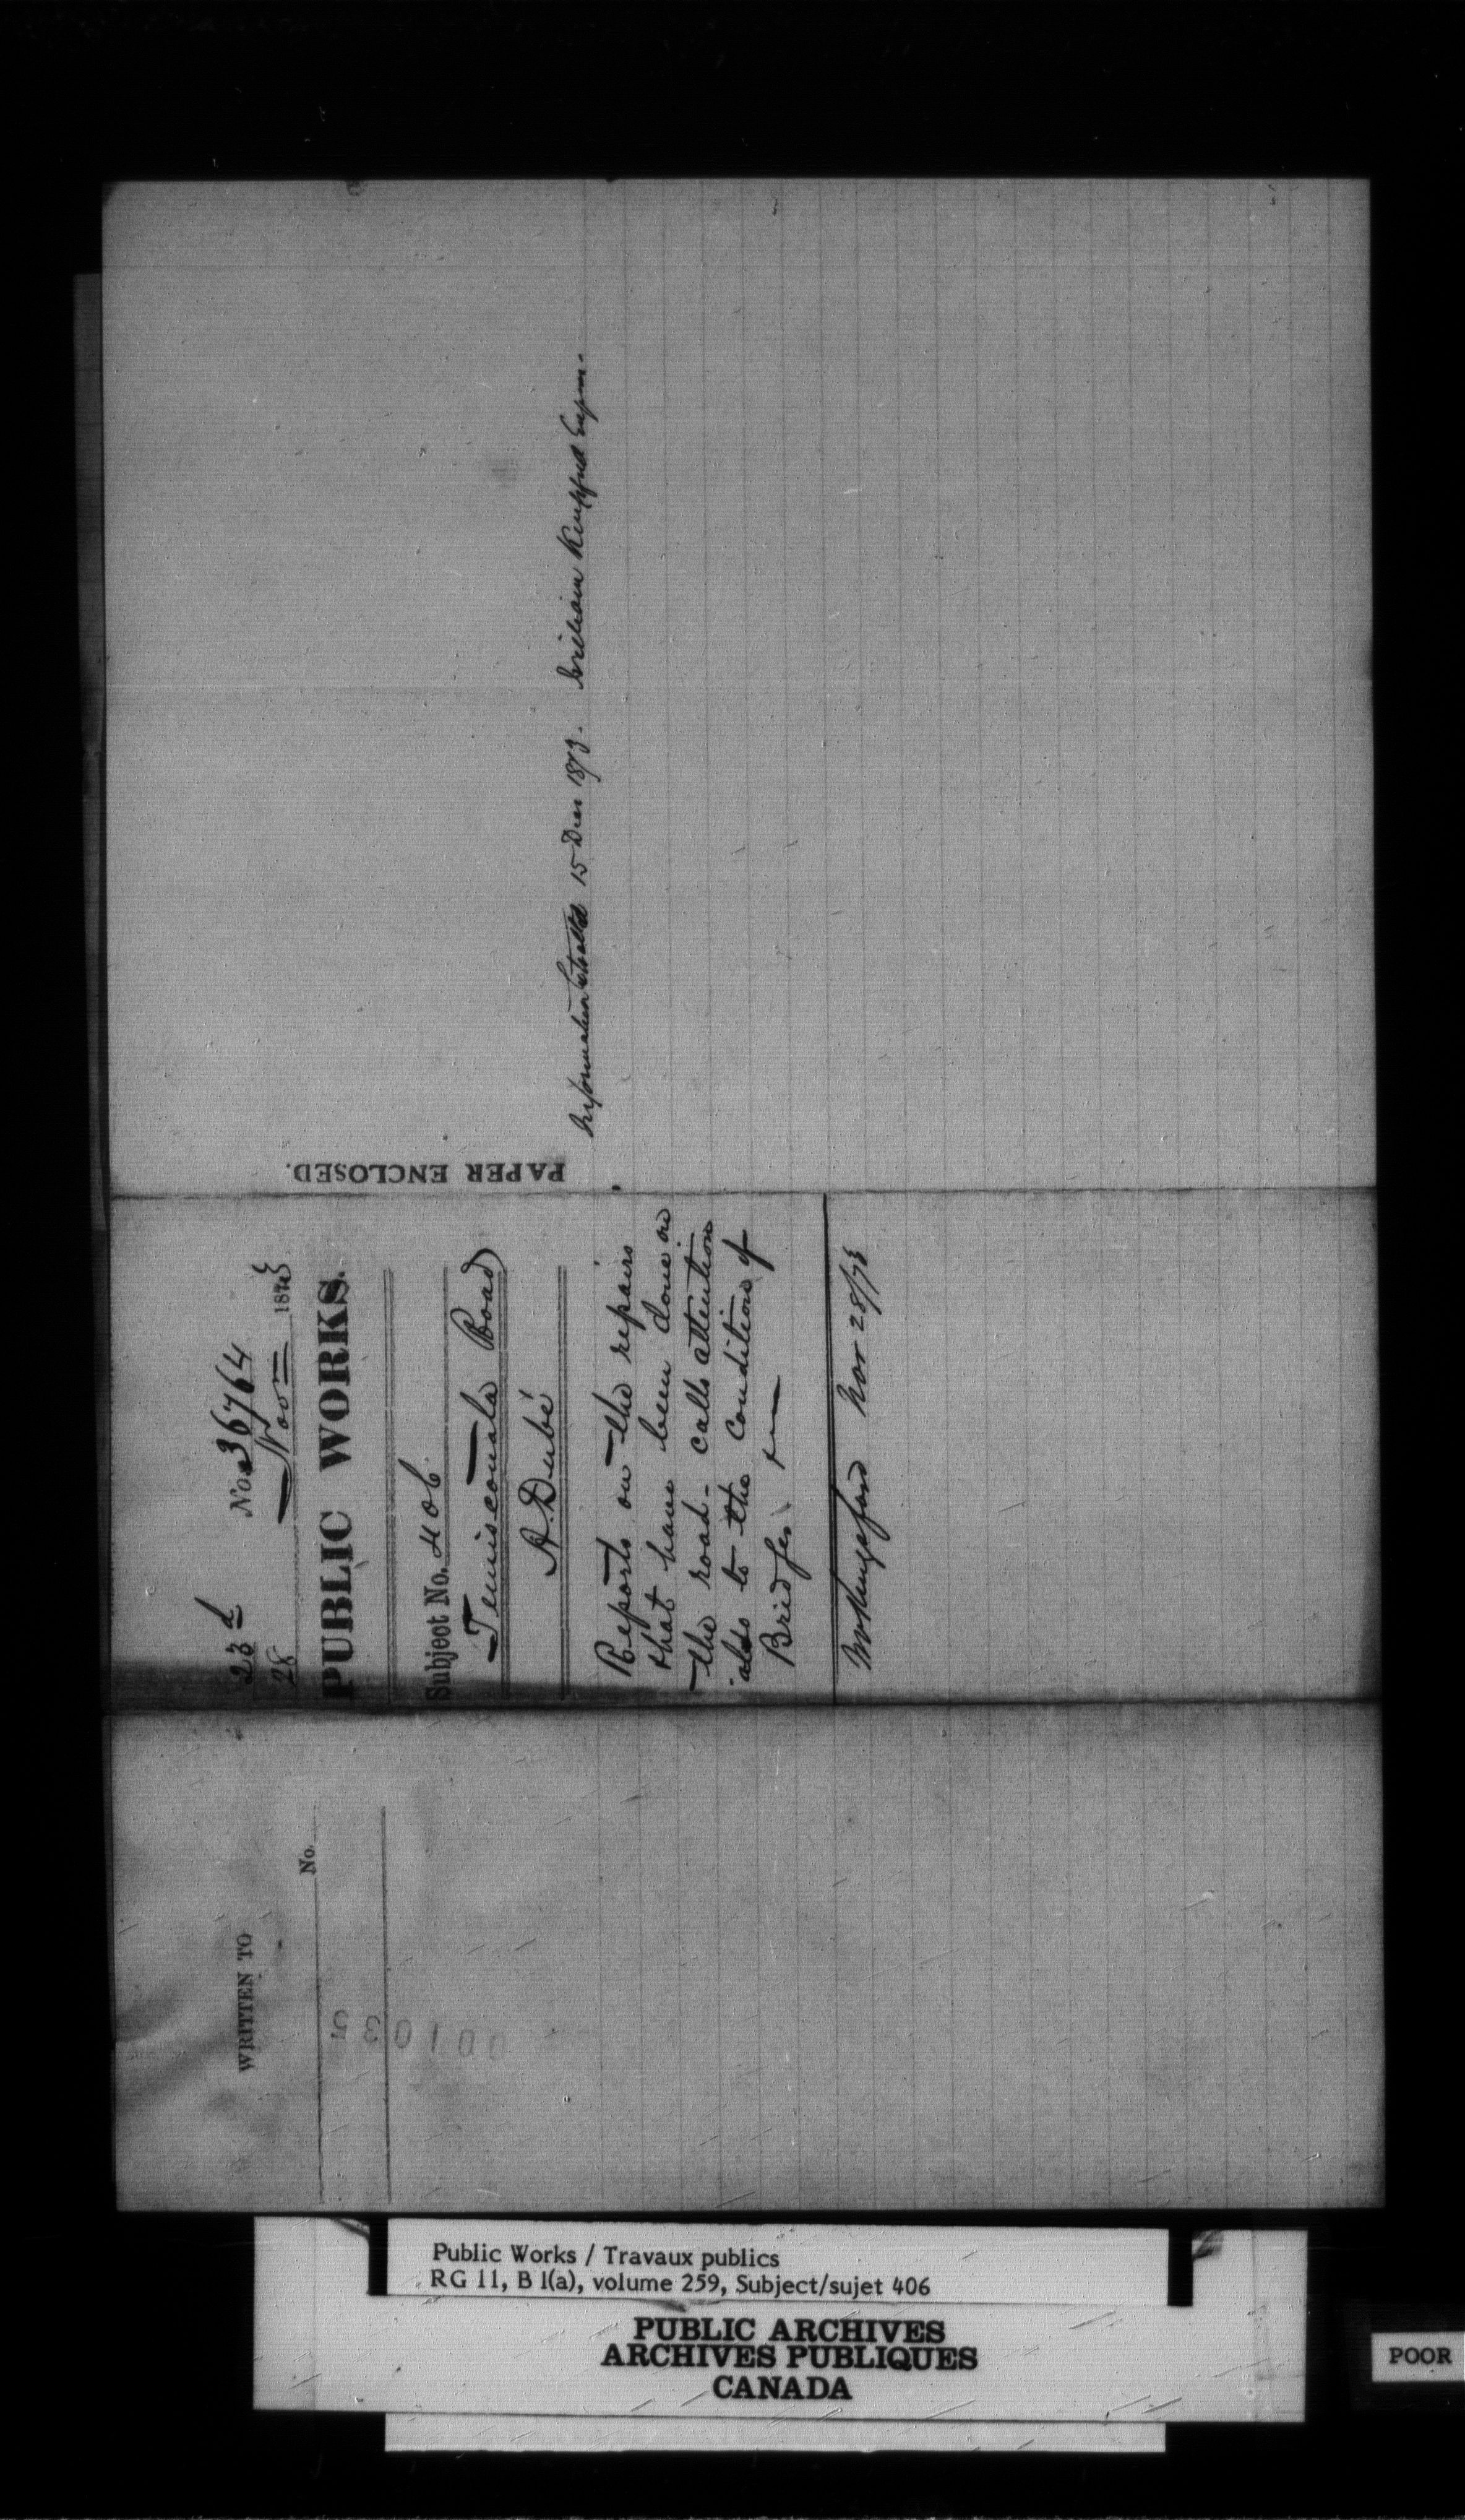 WRITTEN TO
No.
001035
23d
28
No. 36764
Novr 1873
PUBLIC WORKS.
Subject No. 406
Temiscouata Road
A. Dubé
Reports on the repairs
that have been done on
the road - calls attention
also to the condition of
Bridges
Nov 28/73
PAPER ENCLOSED.
Information 15 Decr 1873. William
Public Works / Travaux publics
RG 11, B 1(a), volume 259, Subject/sujet 406
PUBLIC ARCHIVES
ARCHIVES PUBLIQUES
CANADA
POOR